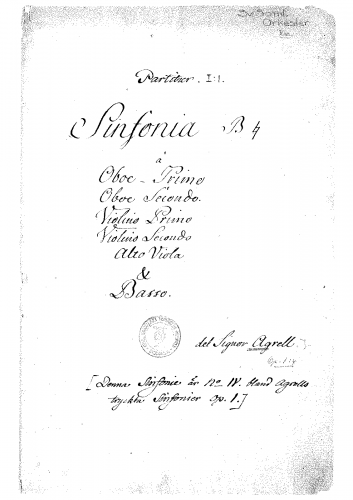 Sv. Saml.
Orkester
Partiturer. I:1.
Sinfonia B ♮
à
Oboe Primo
Oboe Secondo.
Violino Primo
Violino Secondo
Alto Viola
&
Basso.
del Signor Agrell.
Op. 1:4
[Denna Sinfonie är No IV. bland Agrells
tryckta Sinfonier Op. 1.]